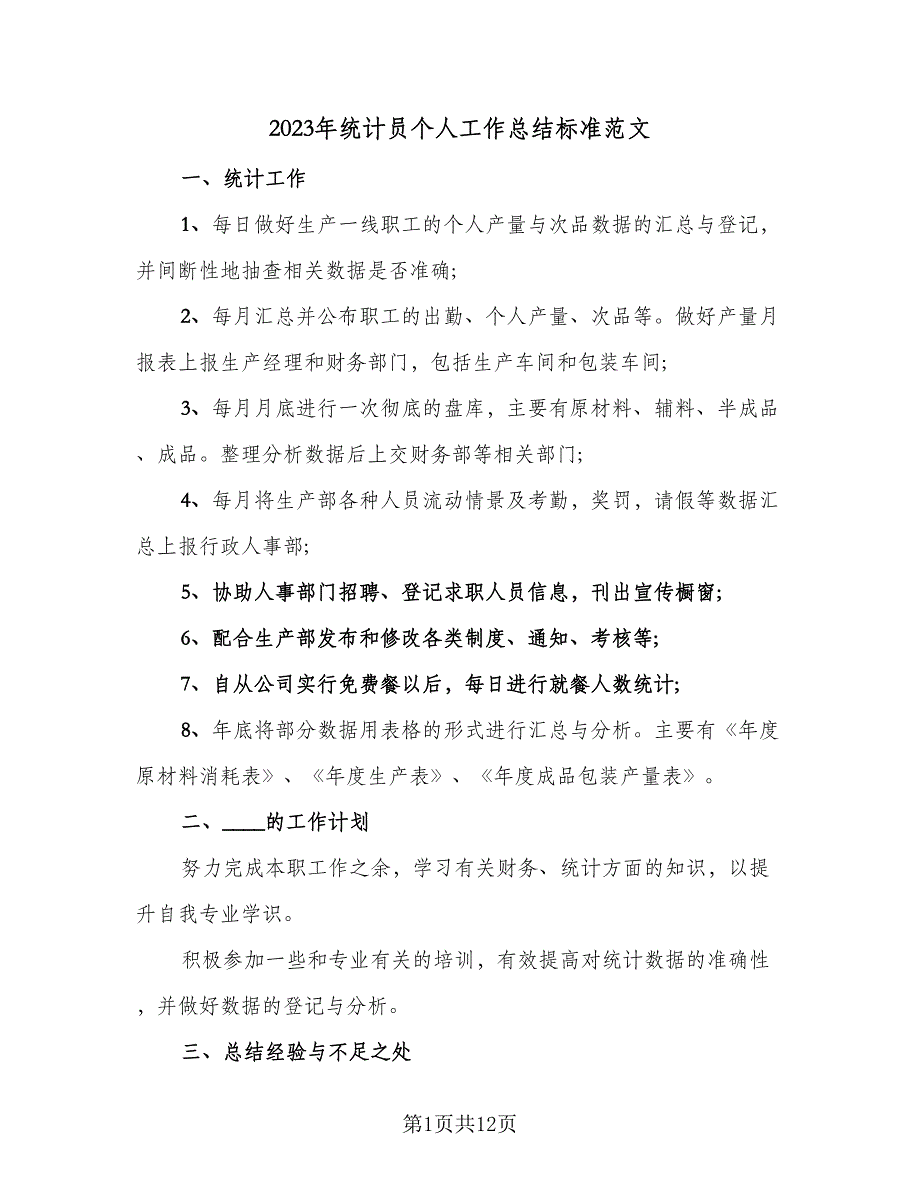 2023年统计员个人工作总结标准范文
一、统计工作
1、每日做好生产一线职工的个人产量与次品数据的汇总与登记，
并间断性地抽查相关数据是否准确;
2、每月汇总并公布职工的出勤、个人产量、次品等。做好产量月
报表上报生产经理和财务部门，包括生产车间和包装车间;
3、每月月底进行一次彻底的盘库，主要有原材料、辅料、半成品
、成品。整理分析数据后上交财务部等相关部门;
4、每月将生产部各种人员流动情景及考勤，奖罚，请假等数据汇
总上报行政人事部;
5、协助人事部门招聘、登记求职人员信息，刊出宣传橱窗;
6、配合生产部发布和修改各类制度、通知、考核等;
7、自从公司实行免费餐以后，每日进行就餐人数统计;
8、年底将部分数据用表格的形式进行汇总与分析。主要有《年度
原材料消耗表》、《年度生产表》、《年度成品包装产量表》。
二、____的工作计划
努力完成本职工作之余，学习有关财务、统计方面的知识，以提
升自我专业学识。
积极参加一些和专业有关的培训，有效提高对统计数据的准确性
，并做好数据的登记与分析。
三、总结经验与不足之处
第1页共12页